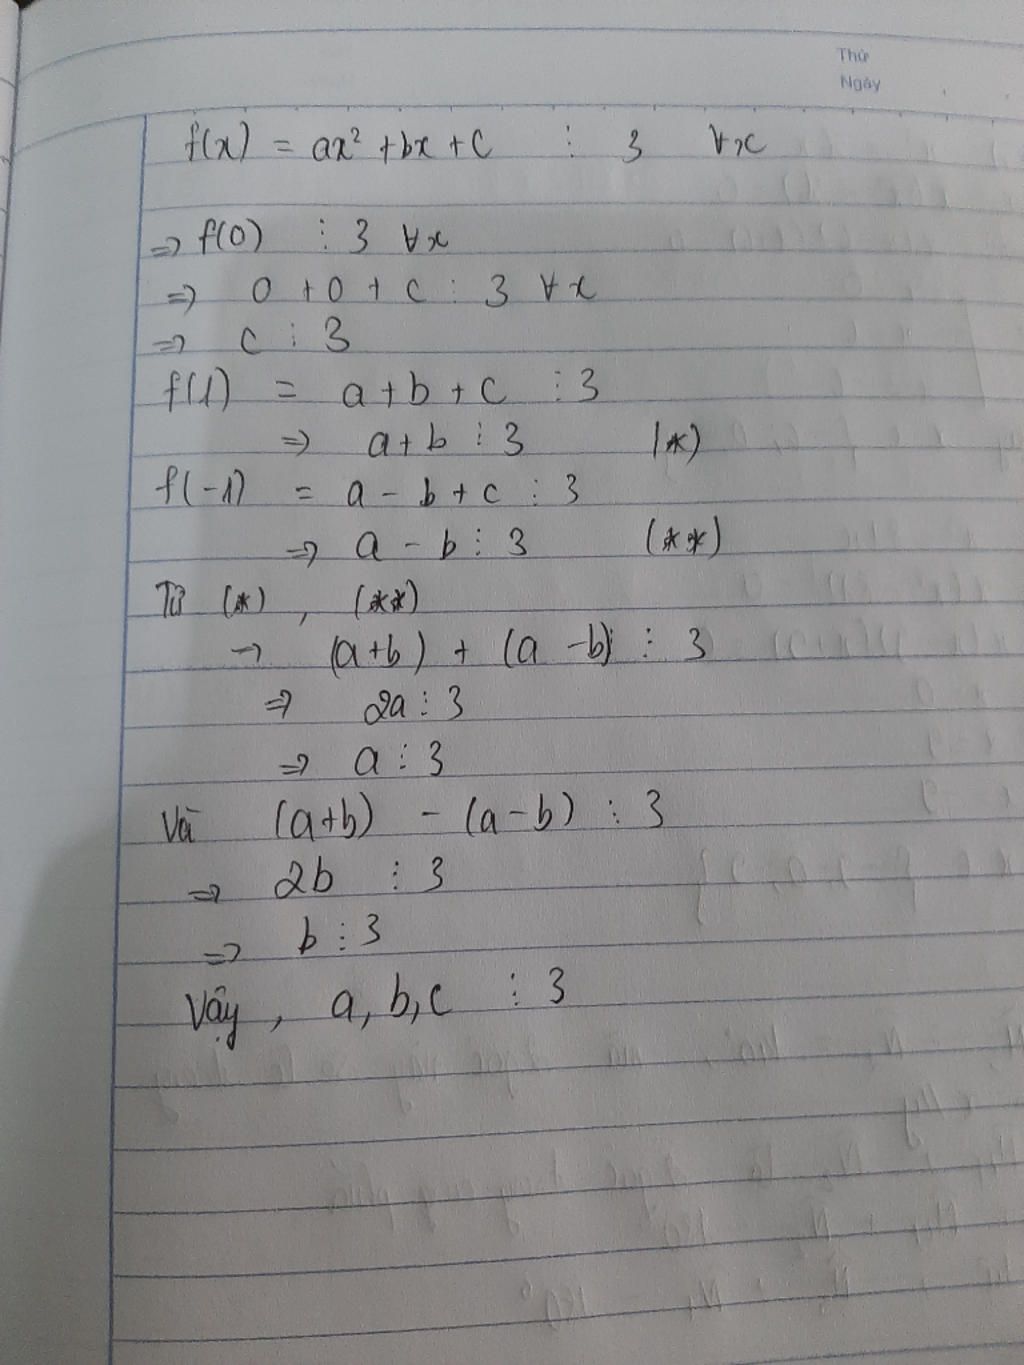 Thứ
Ngày
f(x) = ax² + bx + c ⋮ 3 ∀x
=> f(0) ⋮ 3 ∀x
=> 0 + 0 + c ⋮ 3 ∀x
=> c ⋮ 3
f(1) = a + b + c ⋮ 3
=> a + b ⋮ 3 (*)
f(-1) = a - b + c ⋮ 3
=> a - b ⋮ 3 (**)
Từ (*) , (**)
→ (a+b) + (a - b) ⋮ 3
=> 2a ⋮ 3
=> a ⋮ 3
Và (a+b) - (a-b) ⋮ 3
=> 2b ⋮ 3
=> b ⋮ 3
Vậy, a, b, c ⋮ 3